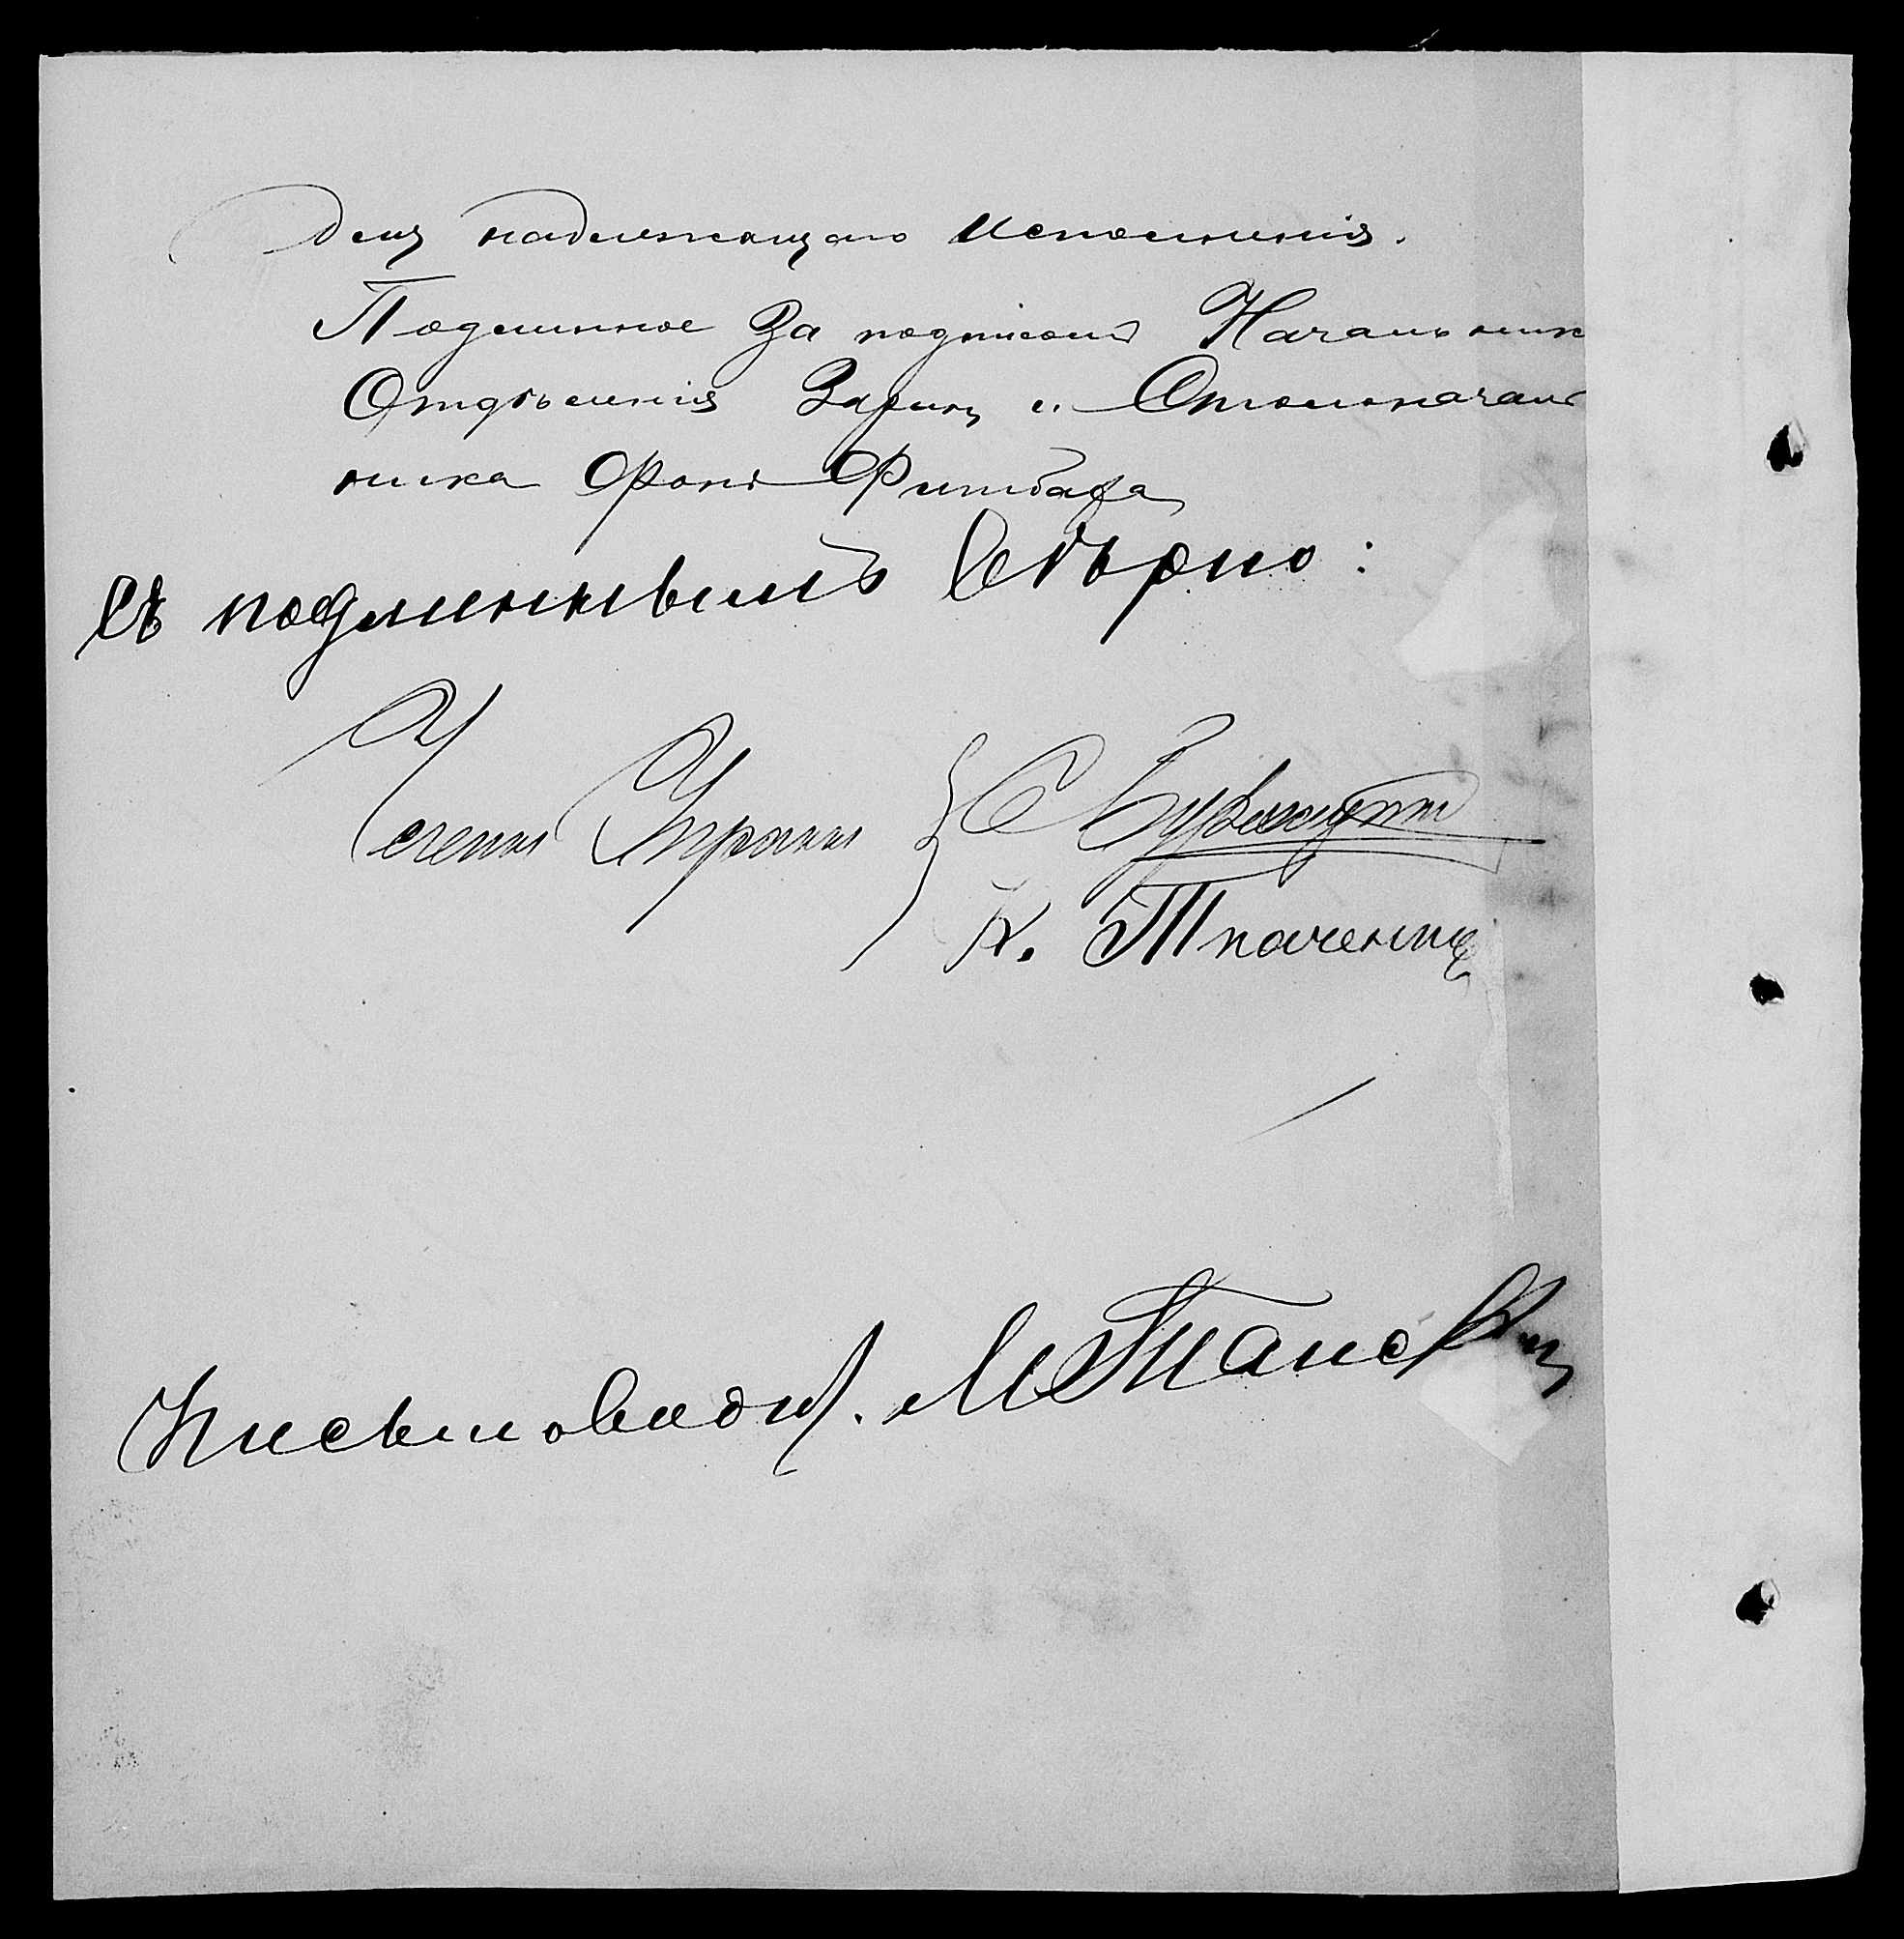 для надлежащаго исполненія.
Подлинное за подписомъ Начальник
Отдѣленія Зарина и Столоначаль
ника Фонъ Фитбаха
Съ подлиннымъ вѣрно:
Члены Управы
К. Ткаченко
Письмоводит. М. Тановскій